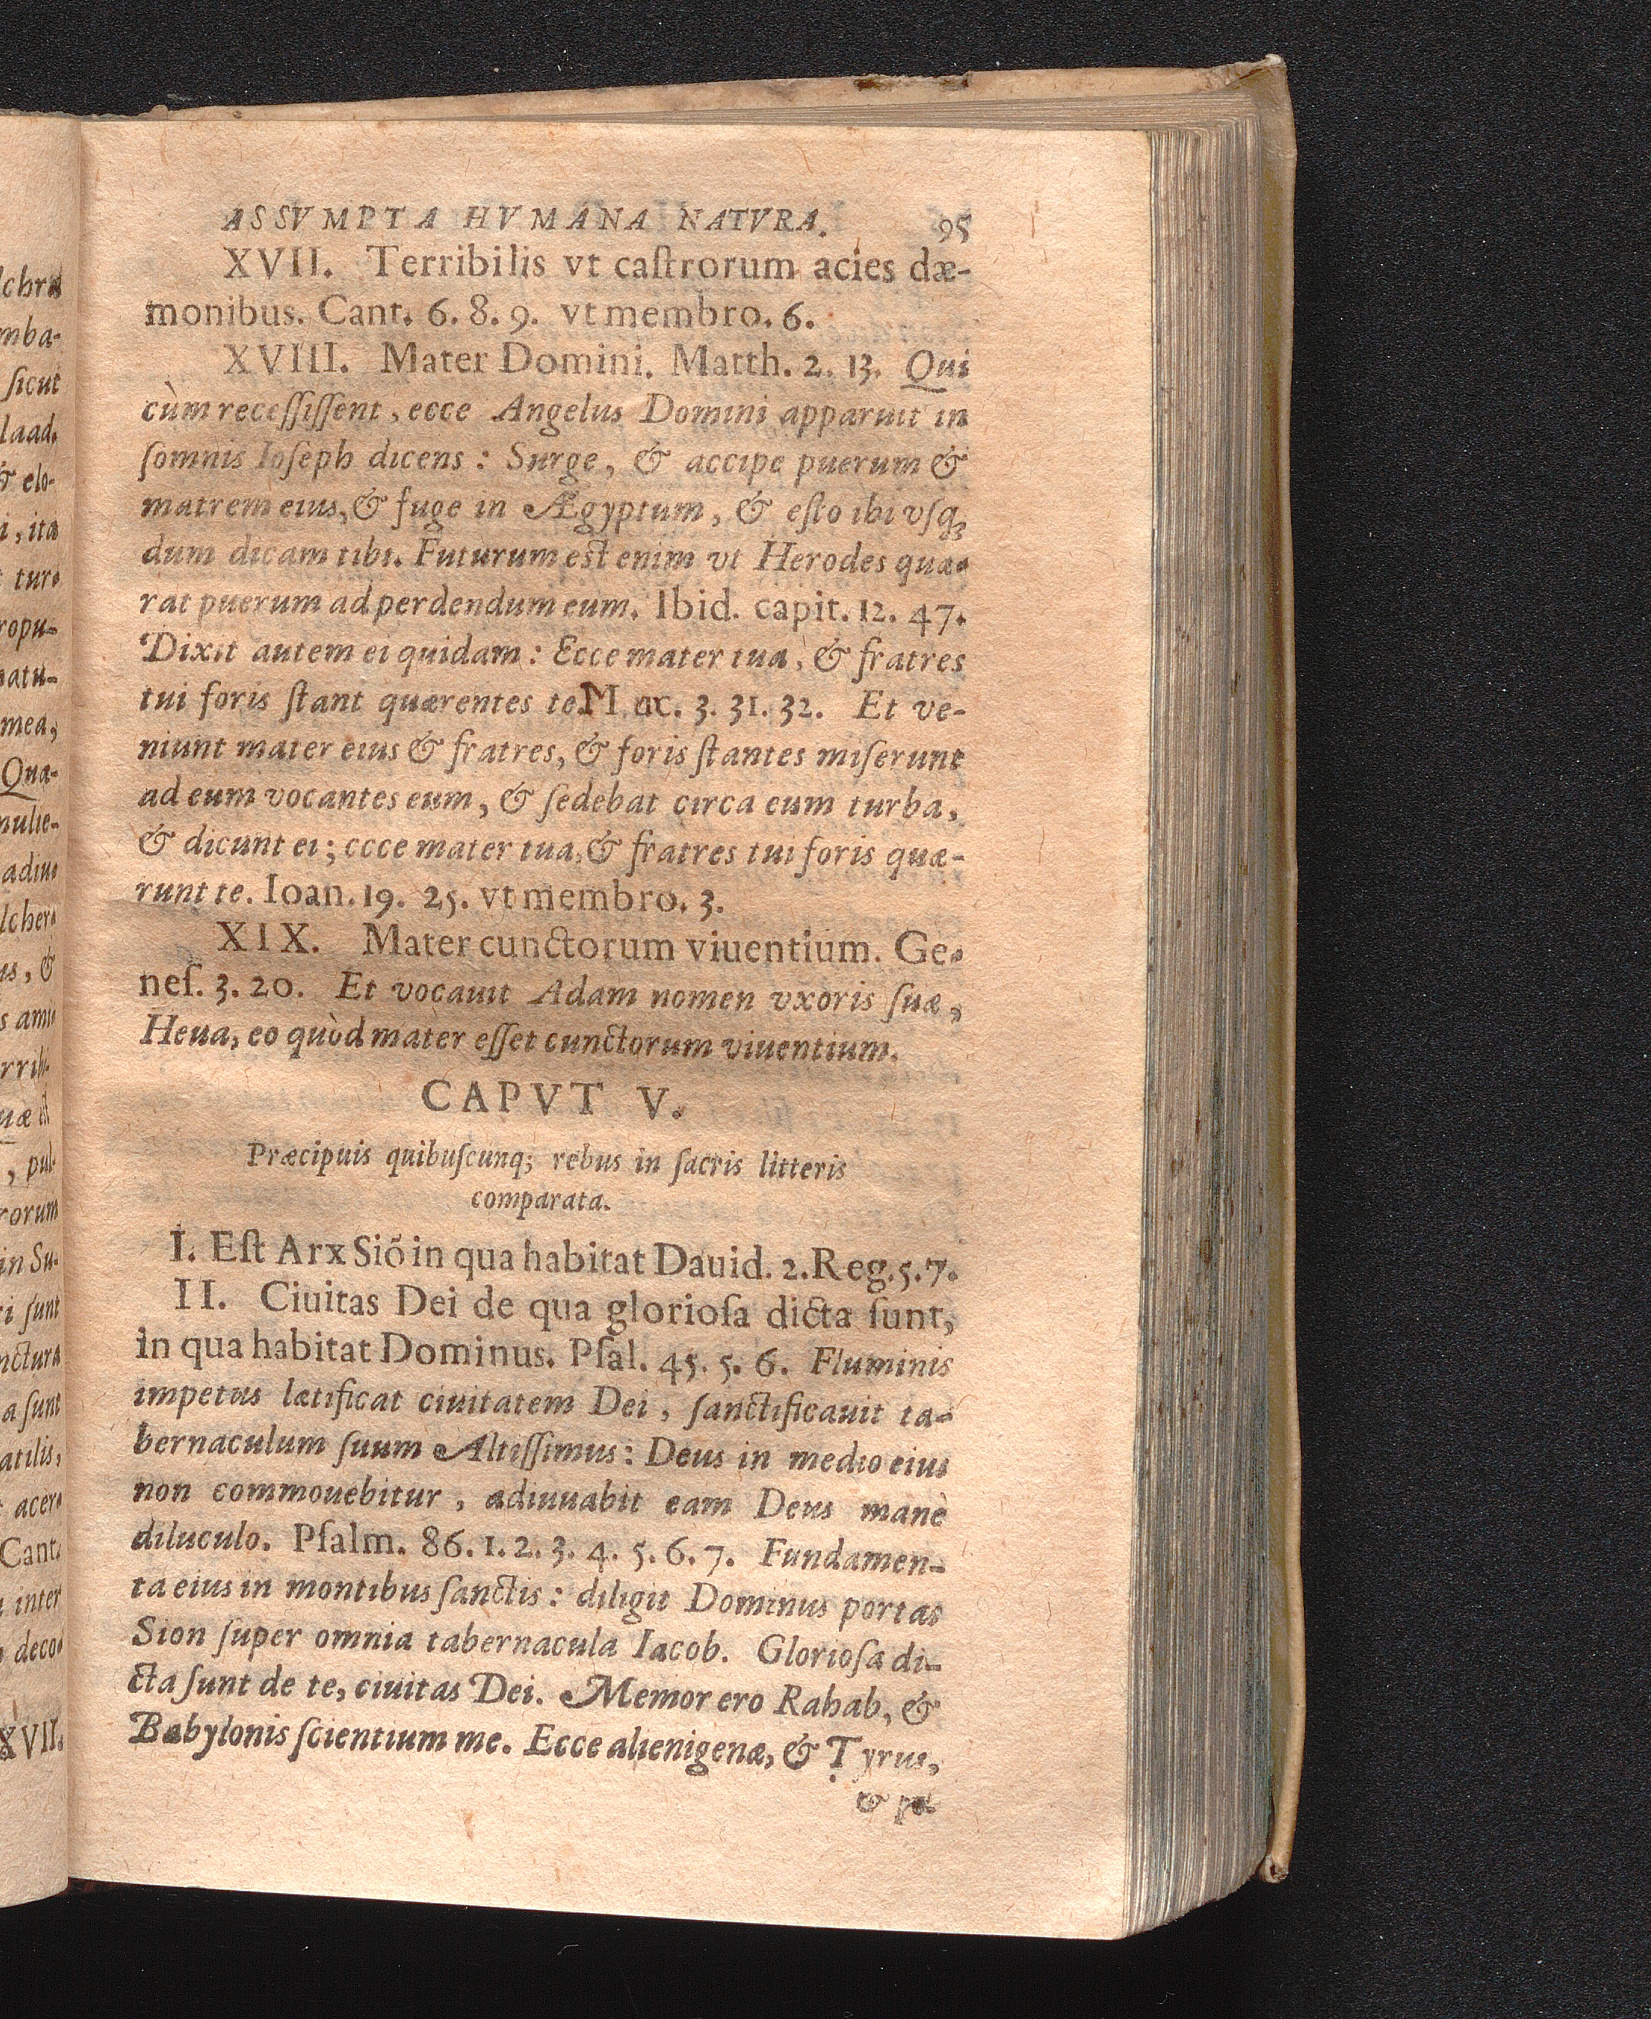 ASSVMPTA HVMANA NATVRA. 95
XVII. Terribilis vt caſtrorum acies dæ-
monibus. Cant. 6. 8. 9. vt membro. 6.
XVIII. Mater Domini. Matth. 2. 13. Qui
cùm receſſiſſent, ecce Angelus Domini apparuit in
ſomnis Ioſeph dicens: Surge, & accipe puerum &
matrem eius, & fuge in Ægyptum, & eſto ibi vſq;
dum dicam tibi. Futurum est enim vt Herodes quæ-
rat puerum ad perdendum eum. Ibid. capit. 12. 47.
Dixit autem ei quidam: Ecce mater tua, & fratres
tui foris ſtant quærentes te. 3. 31. 32. Et ve-
niunt mater eius & fratres, & foris ſtantes miſerunt
ad eum vocantes eum, & ſedebat circa eum turba,
& dicunt ei; ccce mater tua, & fratres tui foris quæ-
runt te. Ioan. 19. 25. vt membro. 3.
XIX. Mater cunctorum viuentium. Ge-
neſ. 3. 20. Et vocauit Adam nomen vxoris ſuæ,
Heua, eo quòd mater eſſet cunctorum viuentium.
CAPVT V.
Præcipuis quibuſcunq; rebus in ſacris litteris
comparata.
I. Eſt Arx Siõ in qua habitat Dauid. 2. Reg. 5. 7.
II. Ciuitas Dei de qua glorioſa dicta ſunt,
in qua habitat Dominus. Pſal. 45. 5. 6. Fluminis
impetus lætificat ciuitatem Dei, ſanctificauit ta-
bernaculum ſuum Altiſſimus: Deus in medio eius
non commouebitur, adiuuabit eam Deus manè
diluculo. Pſalm. 86. 1. 2. 3. 4. 5. 6. 7. Fundamen-
ta eius in montibus ſanctis: diligit Dominus portas
Sion ſuper omnia tabernacula Iacob. Glorioſa di-
cta ſunt de te, ciuitas Dei. Memor ero Rahab, &
Babylonis ſcientium me. Ecce alienigenæ, & Tyrus,
&